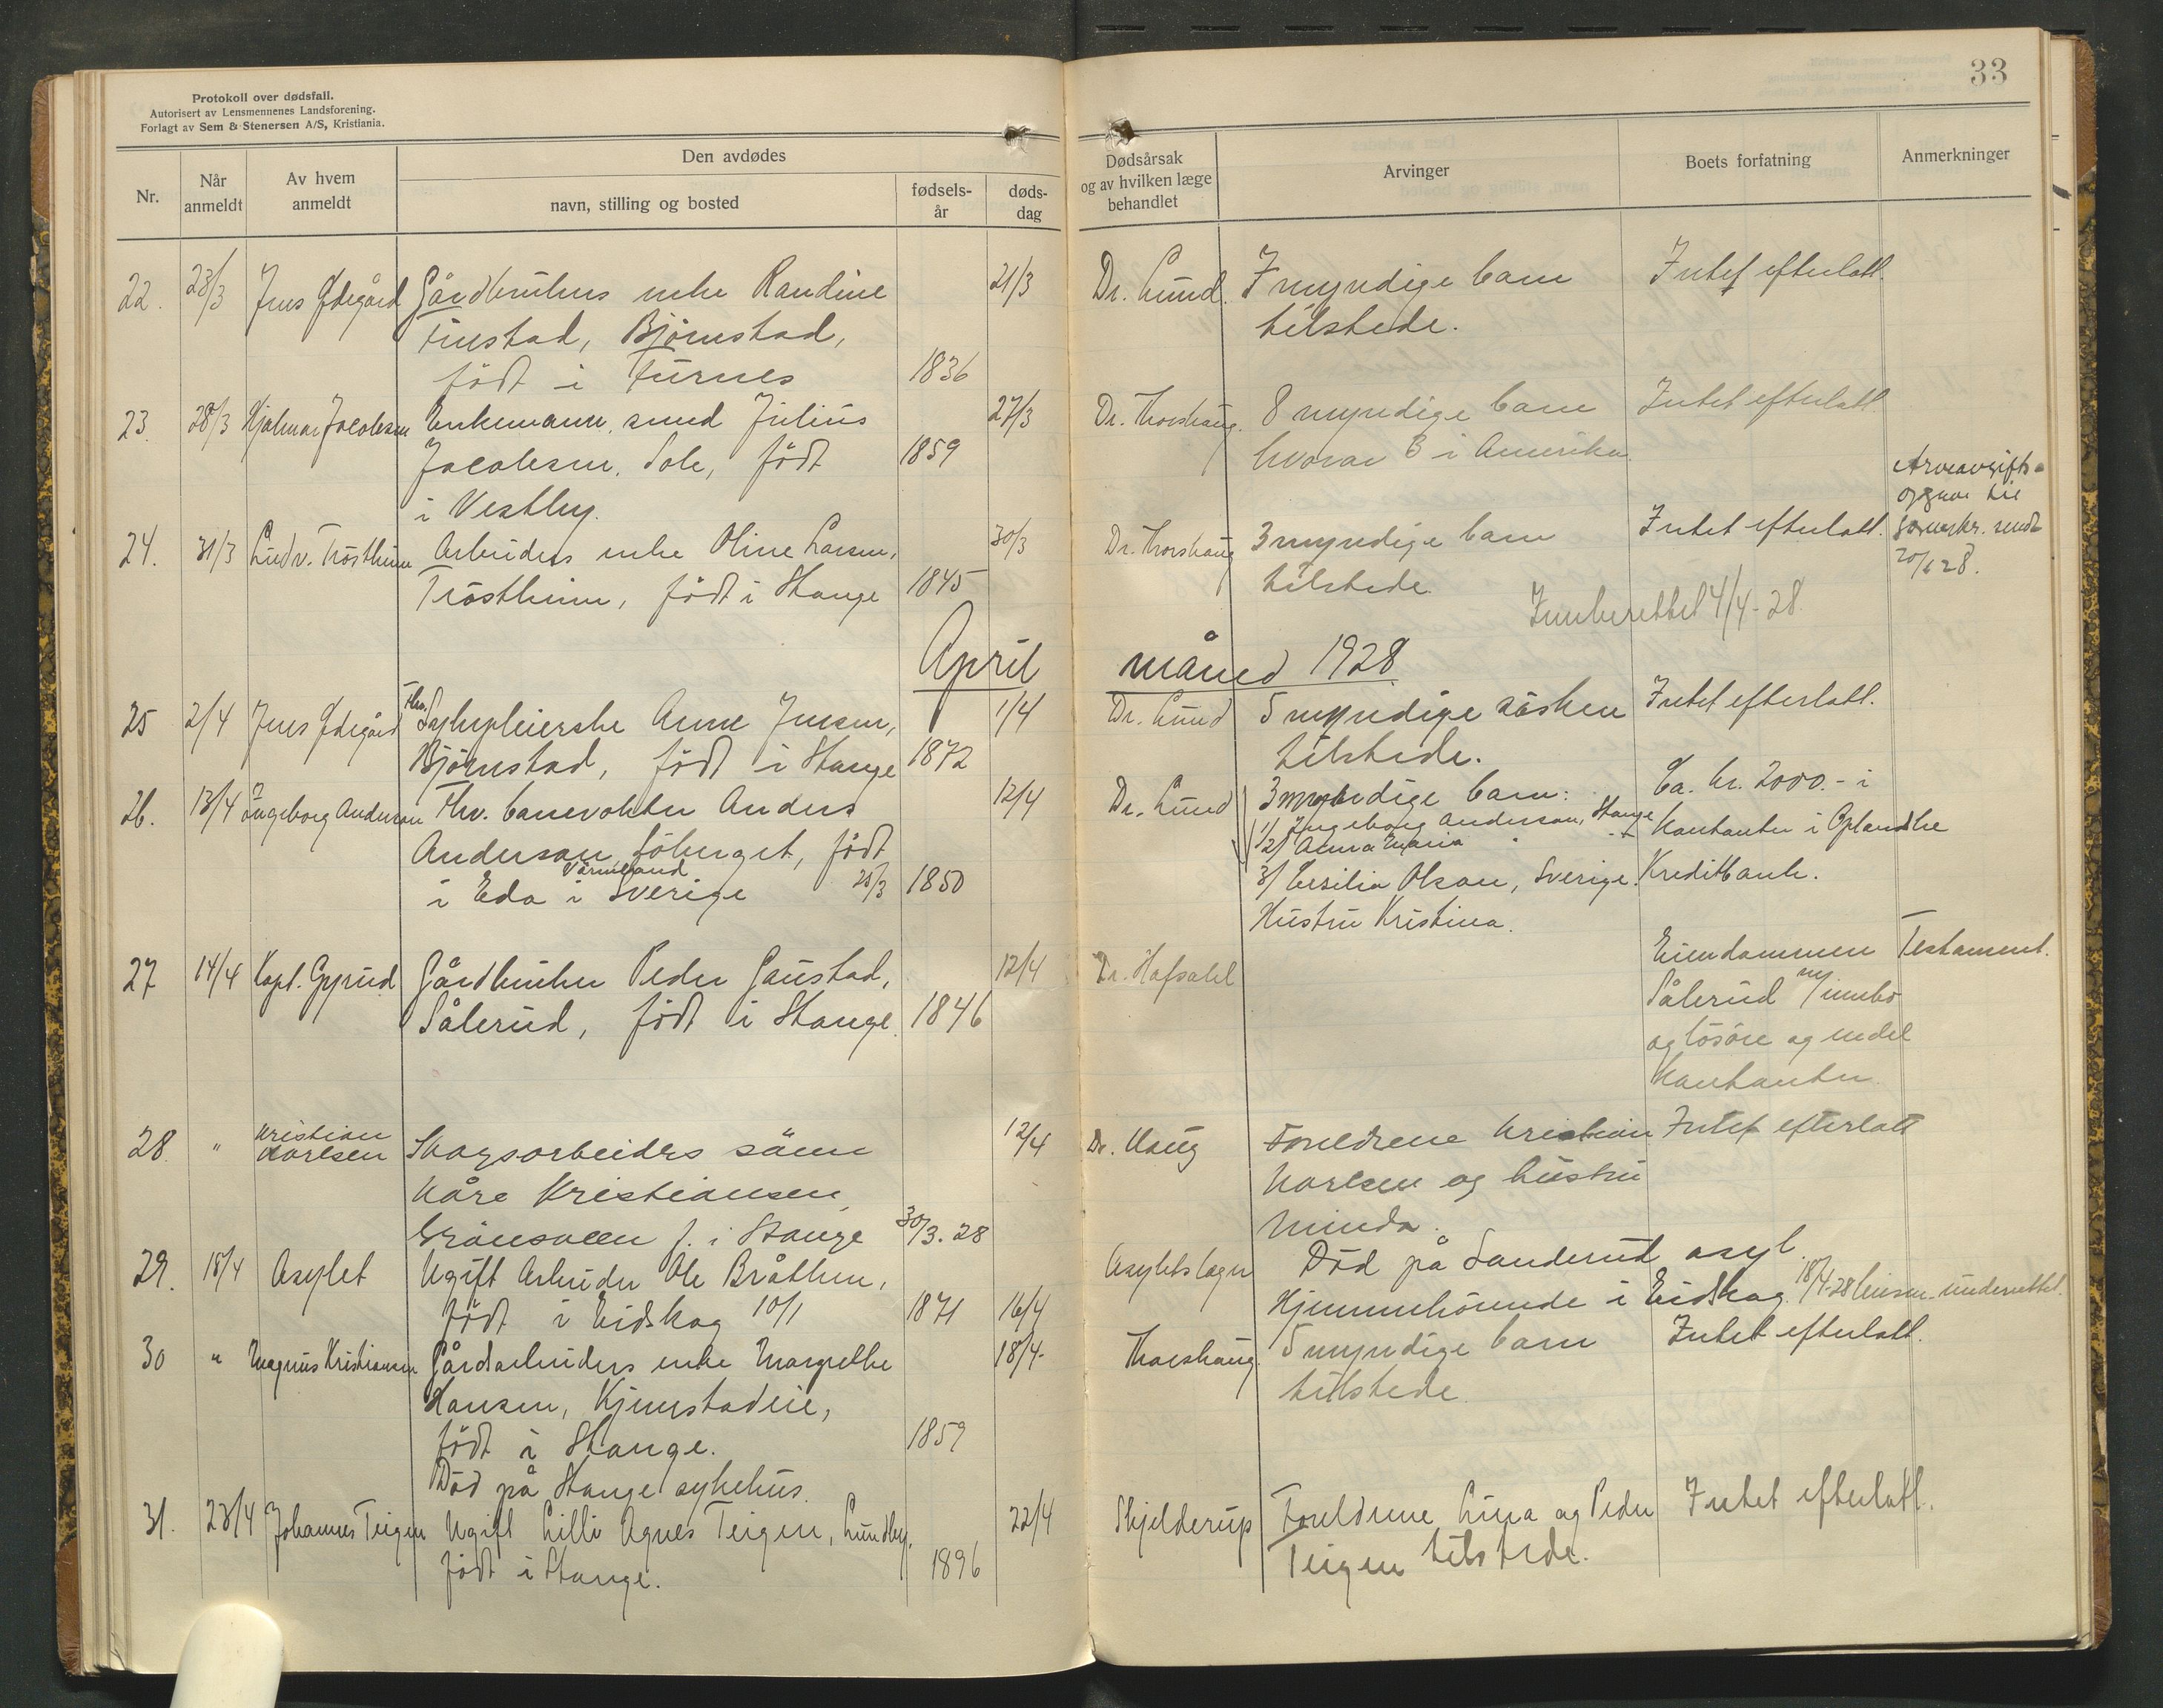 Protokoll over dødsfall.
Autorisert av Lensmennenes Landsforening.
Forlagt av Sem & Stenersen A/S, Kristiania.
33
Nr.
Når anmeldt
Av hvem anmeldt
Den avdødes
navn, stilling og bosted
fødsels-år
døds-dag
Dødsårsak og av hvilken læge behandlet
Arvinger
Boets forfatning
Anmerkninger
22. 23/3 Jens Ødegård Gårdbrukers enke Randine 21/3 Dr. Lund. 7 myndige barn Intet efterlatt.
Finstad, Bjørnstad, tilstede.
født i Furnes 1836
23. 28/3 Hjalmar Jacobsen Enkemann, smed Julius 27/3 Dr. Thorshaug. 8 myndige barn Intet efterlatt.
Jacobsen, Sole, født 1859 hvorav 3 i Amerika.
i Vestby.
24. 31/3 Ludv. Trøstheim Arbeiders enke Oline Larsen, 30/3 Dr. Thorshaug 3 myndige barn Intet efterlatt.
Trøstheim, født i Stange 1845 tilstede.
Arveavgifts-
opgave til
sorenskr. sendt
20/6 28.
Innberettet 4/4-28.
April måned 1928
25 2/4 Jens Ødegård Fhv. Sykepleierske Anne Jensen, 1/4 Dr. Lund 5 myndige søsken Intet efterlatt.
Bjørnstad, født i Stange 1872 tilstede.
26. 13/4 Ingeborg Anderson Fhv. banevokter Anders 12/4 Dr. Lund 3 myndige barn: Ca. kr. 2000.- i
1/ Ingeborg Anderson, Stange kontanter i Oplandske
Anderson, født 2/ Anna Maria " - " Kreditbank.
i Eda i Värmland Sverige 25/3 1850 3/ Cesilia Olson, Sverige.
Hustru Kristina.
27 14/4 Kapt. Gyrud Gårdbruker Peder Gaustad, 12/4 Dr. Hafsahl Eiendommen Testament.
Sålerud, født i Stange. 1846 Sålerud m/ innbo
og løsøre og endel
kontanter.
28. " Kristian Karlsen Skogsarbeiders sønn 12/4 Dr. Haug Foreldrene Kristian Intet efterlatt
Kåre Kristiansen, Karlsen og hustru
f. i Stange 30/3. 28 Minda.
29. 18/4 Asylet Ugift Arbeider Ole Bråthen, Asylets læge Død på Sanderud asyl.
født i Eidskog 10/1 1871 16/4 Hjemmehørende i Eidskog. 18/4-28 lensm. underrettet.
30 " Magnus Kristiansen Gårdarbeiders enke Margrethe 18/4- Thorshaug. 5 myndige barn Intet efterlatt.
Hansen, Kjemstadeie, tilstede.
født i Stange. 1859
Død på Stange sykehus.
31. 23/4 Johannes Teigen Ugift Lilli Agnes Teigen, Lundby. 22/4 Skjelderup Foreldrene Lina og Peder Intet efterlatt.
født i Stange. 1896 Teigen tilstede.